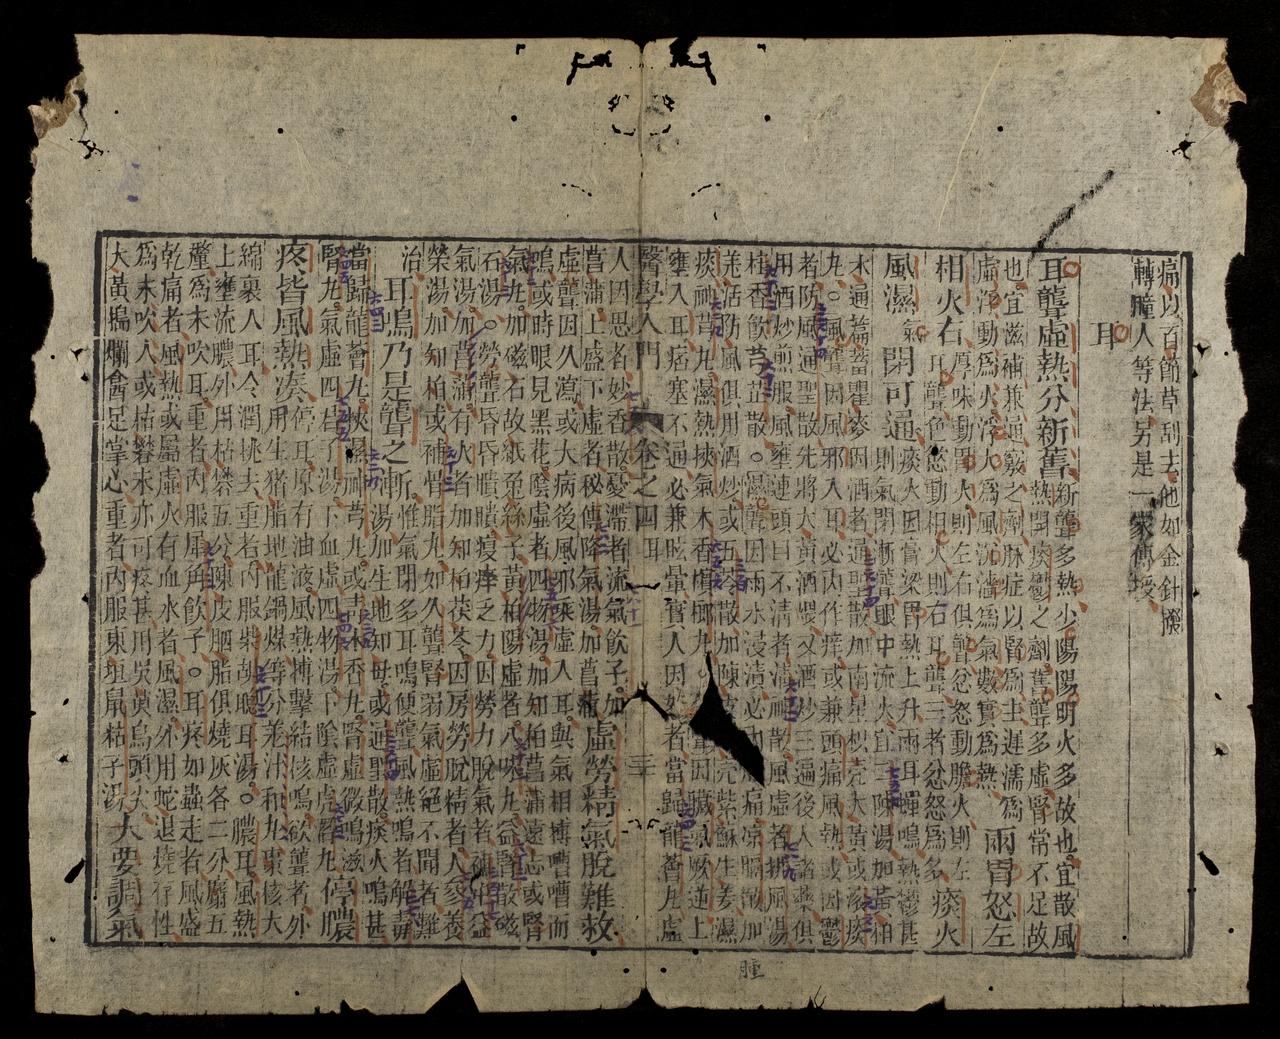 痛以百節草刮去他如金針撥
轉瞳人等法另是一家傳授
耳
耳聾虛熱分新舊新聾多熱少陽陽明火多故也宜散風
熱開痰鬱之劑舊聾多虛腎常不足故
也宜滋補兼通竅之劑脉症以腎爲主遲濡爲
虛浮動爲火浮大爲風沉濇爲氣數實爲熱
兩胃怒左
相火右耳聾色慾動相火則右耳聾三者忿怒爲多
厚味動胃火則左右俱聾忿怒動膽火則左
痰火
風濕氣閉可通痰火因膏梁胃熱上升兩耳蟬鳴熱鬱甚
則氣閉漸聾眼中流火宜二陳湯加黃柏
木通萹蓄瞿麥因酒者通聖散加南星枳壳大黃或滾痰
九風聾因風邪入耳必內作痒或兼頭痛風熱或因鬱
者防風通聖散先將大黃酒煨又酒炒三遍後入諸藥俱
用酒炒煎服風壅連頭目不清者清神散風虛者排風湯
桂香飲芎芷散濕聾因雨水浸漬必痛凉膈散加
羌活防風俱用酒炒或五苓散加陳皮枳壳紫蘇生姜濕
痰神芎九濕熱挾氣木香檳榔九聾因臟氣厥逆上
壅入耳痞塞不通必兼眩暈實人因怒者當歸龍薈九虛
醫學入門 卷之四 耳
人因思者妙香散憂滯者流氣飲子加
菖蒲上盛下虛者秘傳降氣湯加菖蒲虛勞精氣脫難救
虛聾因久瀉或大病後風邪乘虛入耳與氣相搏嘈嘈而
鳴或時眼見黑花陰虛者四物湯加知柏菖蒲遠志或腎
氣九加磁石故紙兔絲子黃柏陽虛者八味九益腎散磁
石湯勞聾昏昏聵聵瘦痒乏力因勞力脫氣者補中益
氣湯加菖蒲有火者加知柏茯苓因房勞脫精者人參養
榮湯加知柏或補骨脂九如久聾腎弱氣虛絕不聞者難
治耳鳴乃是聾之漸惟氣閉多耳鳴便聾風熱鳴者解毒
湯加生地知母或通聖散痰火鳴甚
當歸龍薈九挾濕神芎九或青木香九腎虛微鳴滋
腎九氣虛四君子湯下血虛四物湯下陰虛虎潛九停膿
疼皆風熱湊停耳原有油液風熱搏擊結核鳴欲聾者外
用生猪脂地龍鍋煤等分姜汁和九棗核大
綿裹入耳令潤挑去重者內服柴胡聰耳湯膿耳風熱
上壅流膿外用枯礬五分陳皮胭脂俱燒灰各二分麝五
釐爲末吹耳重者內服犀角飲子耳疼如蟲走者風盛
乾痛者風熱或屬虛火有血水者風濕外用蛇退燒存性
爲末吹入或枯礬末亦可疼甚用吳萸烏頭尖
大黃搗爛盦足掌心重者內服東垣鼠粘子湯大要調氣
腫